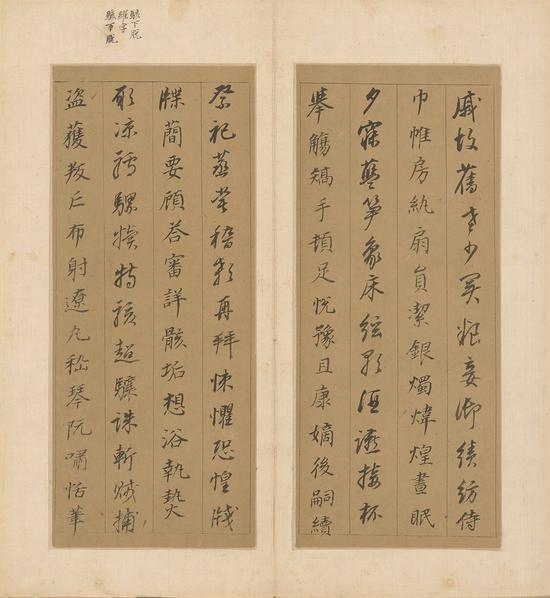 戚故舊老少異粮妾御績紡侍
巾帷房紈扇員潔銀燭煒煌晝眠
夕寐藍笋象床弦歌酒讌接杯
舉觴矯手頓足悅豫且康嫡後嗣續
下脫
躍字
下脫
祭祀蒸嘗稽顙再拜悚懼恐惶牋
牒簡要顧答審詳骸垢想浴執熱
願涼驢騾犢特駭超驤誅斬賊捕
盜獲叛亡布射遼丸嵇琴阮嘯恬筆